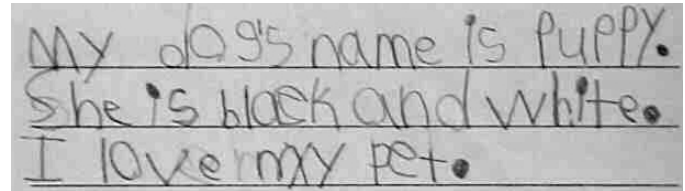 My dog's name is Puppy.
She is black and white.
I love my pet.